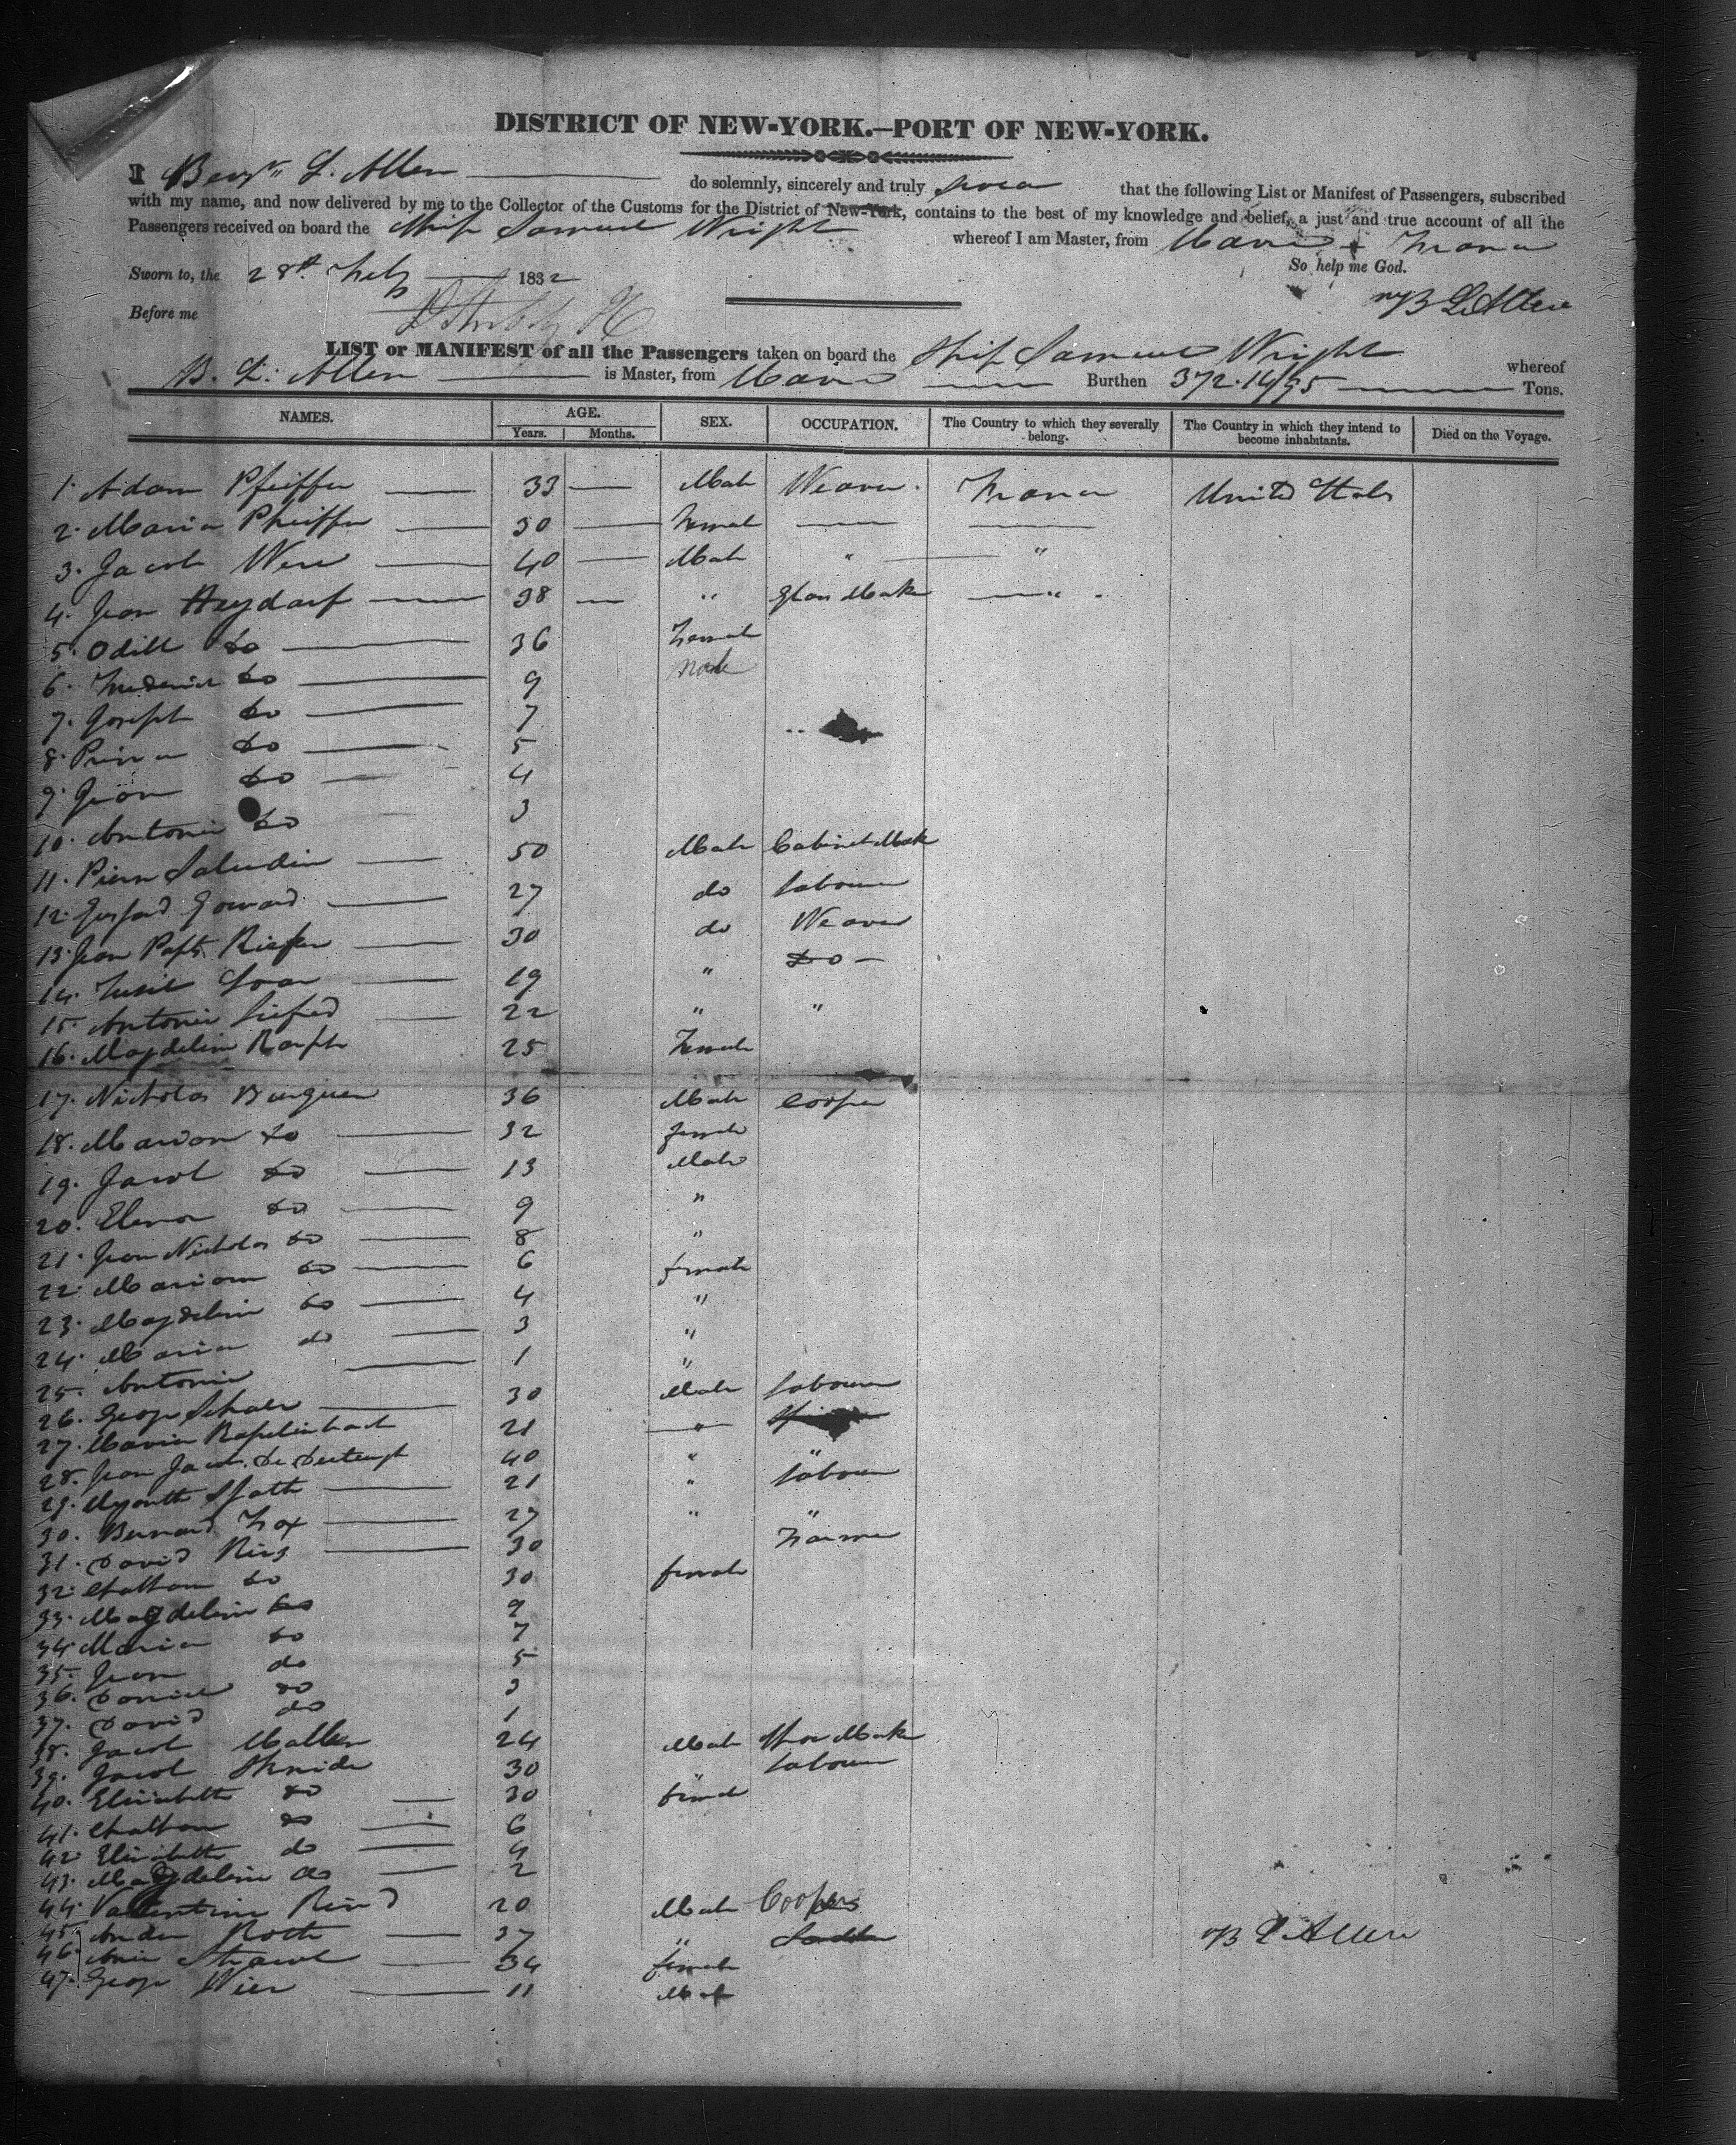 DISTRICT OF NEW-YORK.—PORT OF NEW-YORK.
I Benjn L. Allen do solemnly, sincerely and truly swear that the following List or Manifest of Passengers, subscribed
with my name, and now delivered by me to the Collector of the Customs for the District of New-York, contains to the best of my knowledge and belief, a just and true account of all the
Passengers received on board the Ship Samuel Wright whereof I am Master, from Havre France
Sworn to, the 28th Feby 1832 So help me God.
Before me B L Allen
LIST or MANIFEST of all the Passengers taken on board the Ship Samuel Wright whereof
B. L. Allen is Master, from Havre Burthen 372.14/95 Tons.
NAMES. AGE. SEX. OCCUPATION. The Country to which they severally belong. The Country in which they intend to become inhabitants. Died on the Voyage.
Years. Months.
1. Adam Pfeiffer 33 Male Weaver. France United States
2. Maria Pheiffer 30 Female
3. Jacob 40 Male " "
4. Jean Heydorf 38 " Glass Maker "
5. Odill Do 36 Female
6. Frederick Do 9 Male
7. Joseph Do 7
8. Do 5
9. Jean Do 4
10. Antonie Do 3
11. Piern Saludin 50 Male Cabinet Mak
12. 27 do labourer
13. Jean Bapts. 30 do Weaver
14. 19 " Do
15. Antonie Siefried 22 " "
16. Magdelin 25 Female
17. Nicholas 36 Male Cooper
18. Marian Do 32 female
19. Jacob Do 13 Male
20. Elenor Do 9 "
21. Jean Nicholas Do 8 "
22. Mariann Do 6 female
23. Magdelini Do 4 "
24. Maria do 3 "
25. Antonie 1 "
26. George Schaer 30 Male labourer
27. Maria 21 "
28. Jean Jacob 40 " "
29. Spath 21 " labourer
30. Bernard Fox 27 " "
31. David 30 Farmer
32. Do 30 female
33. Magdelini Do 9
34. Maria Do 7
35. Jean do 5
36. Daniel Do 3
37. David do 1
38. Jacob 24 Male Shoe Maker
39. Jacob Shnider 30 " labourer
40. Elizabeth Do 30 female
41. Do 6
42. Elizabeth do 4
43. Magdelini do 2
44. Valentine 20 Male Coopers
45. Roth 37 "
46. Strawb 34 female
47. George Wier 11 Male
B L Allen